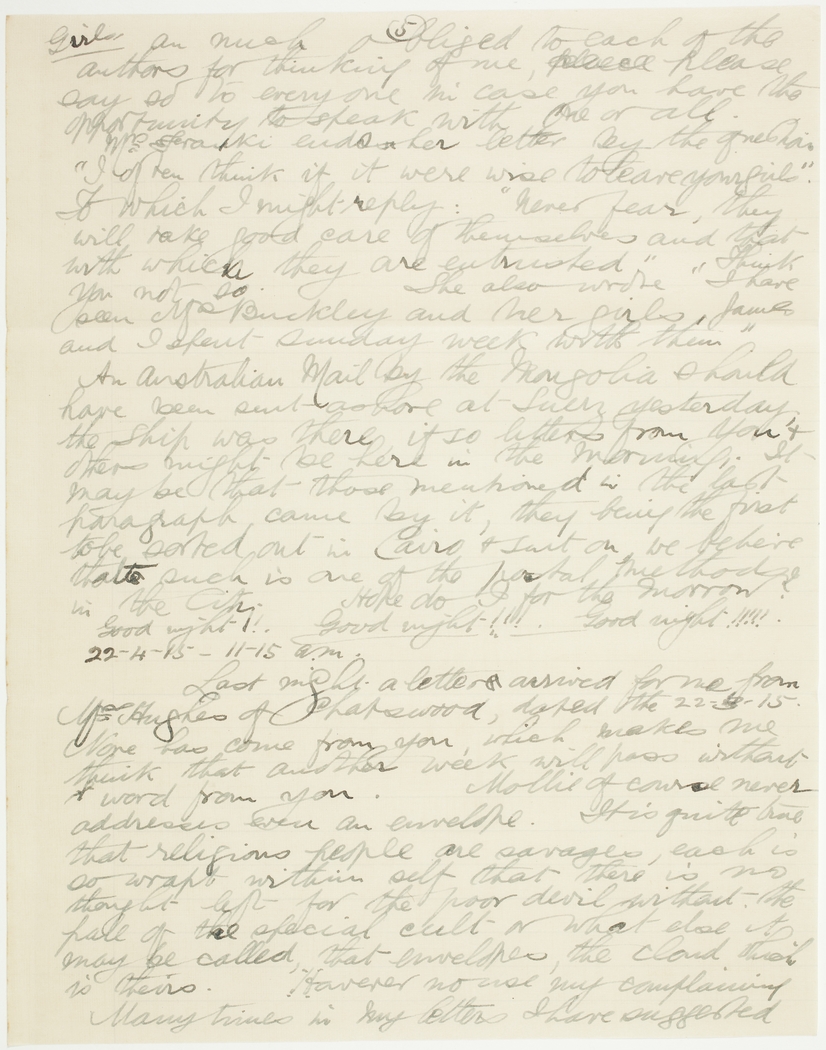 (5)
Girls am much obliged to each of the
authors for thinking of me, please please
say so to everyone in case you have the
opportunity to speak with one or all.
Mrs ends her letter by the question
"I often think if it were wise to leave your girls".
To which I might reply: "Never fear, they
will take good care of themselves and that
with which they are entrusted" "Think
you not so. She also wrote "I have
seen Mrs Buckley and her girls, James
and I spent Sunday week with them"
An Australian Mail by the Mongolia should
have been sent ashore at Suez yesterday,
the ship was there, if so letters from you &
others might be here in the morning. It
may be that those mentioned in the last
paragraph came by it, they being the first
to be sorted out in Cairo & sent on, we believe
that such is one of the postal methods
in the City. Hope do I for the morrow?
Good night!!. Good night!!!!. Good night!!!!!.
22-4-15 - 11-15 am.
Last night a letter arrived for me from
Mrs Hughes of Chatswood, dated the 22-3-15.
None has come from you, which makes me
think that another week will pass without
a word from you. Mollie of course never
addresses even an envelope. It is quite true
that religious people are savages, each is
so wrapt within self that there is no
thought left for the poor devil without the
pale of the special cult or what else it
may be called, that envelopes, the cloud that
is theirs. However no use my complaining
Many times in my letters I have suggested